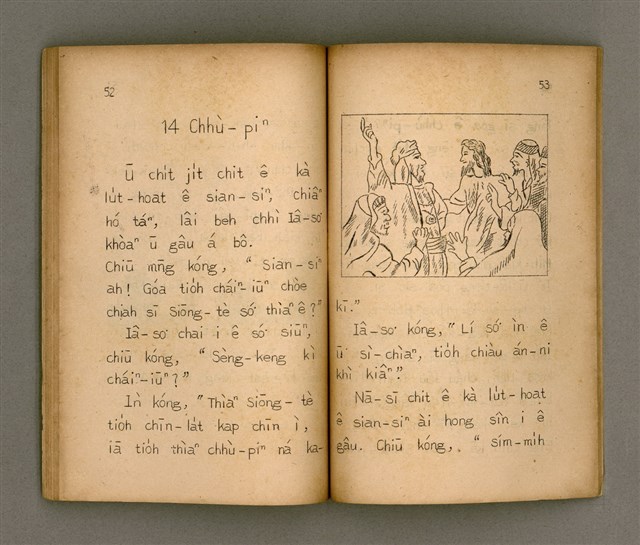 52
14 Chhù-piⁿ
Ū chi̍t ji̍t chi̍t ê kà
lu̍t-hoat ê sian-siⁿ, chiâⁿ
hó táⁿ, lâi beh chhì Iâ-so͘
khòaⁿ ū gâu á bô.
Chiū mn̄g kóng, "Sian-siⁿ
ah! Góa tio̍h cháiⁿ-iūⁿ chòe
chiah sī Siōng-tè só͘ thìaⁿ ê?"
Iâ-so͘ chai i ê só͘ siūⁿ,
chiū kóng, "Sèng-keng kì
cháiⁿ-iūⁿ?"
In kóng, "Thiàⁿ Siōng-tè
tio̍h chīn-la̍t kap chīn ì,
iā tio̍h thìaⁿ chhù-piⁿ ná ka-
53
kī."
Iâ-so͘ kóng, "Lí só͘ ìn ê
ū sì-chìaⁿ, tio̍h chiàu án-ni
khì kiâⁿ."
Nā-sī chit ê kà lu̍t-hoat
ê sian-siⁿ ài hong sîn i ê
gâu. Chiū kóng, "sím-mih